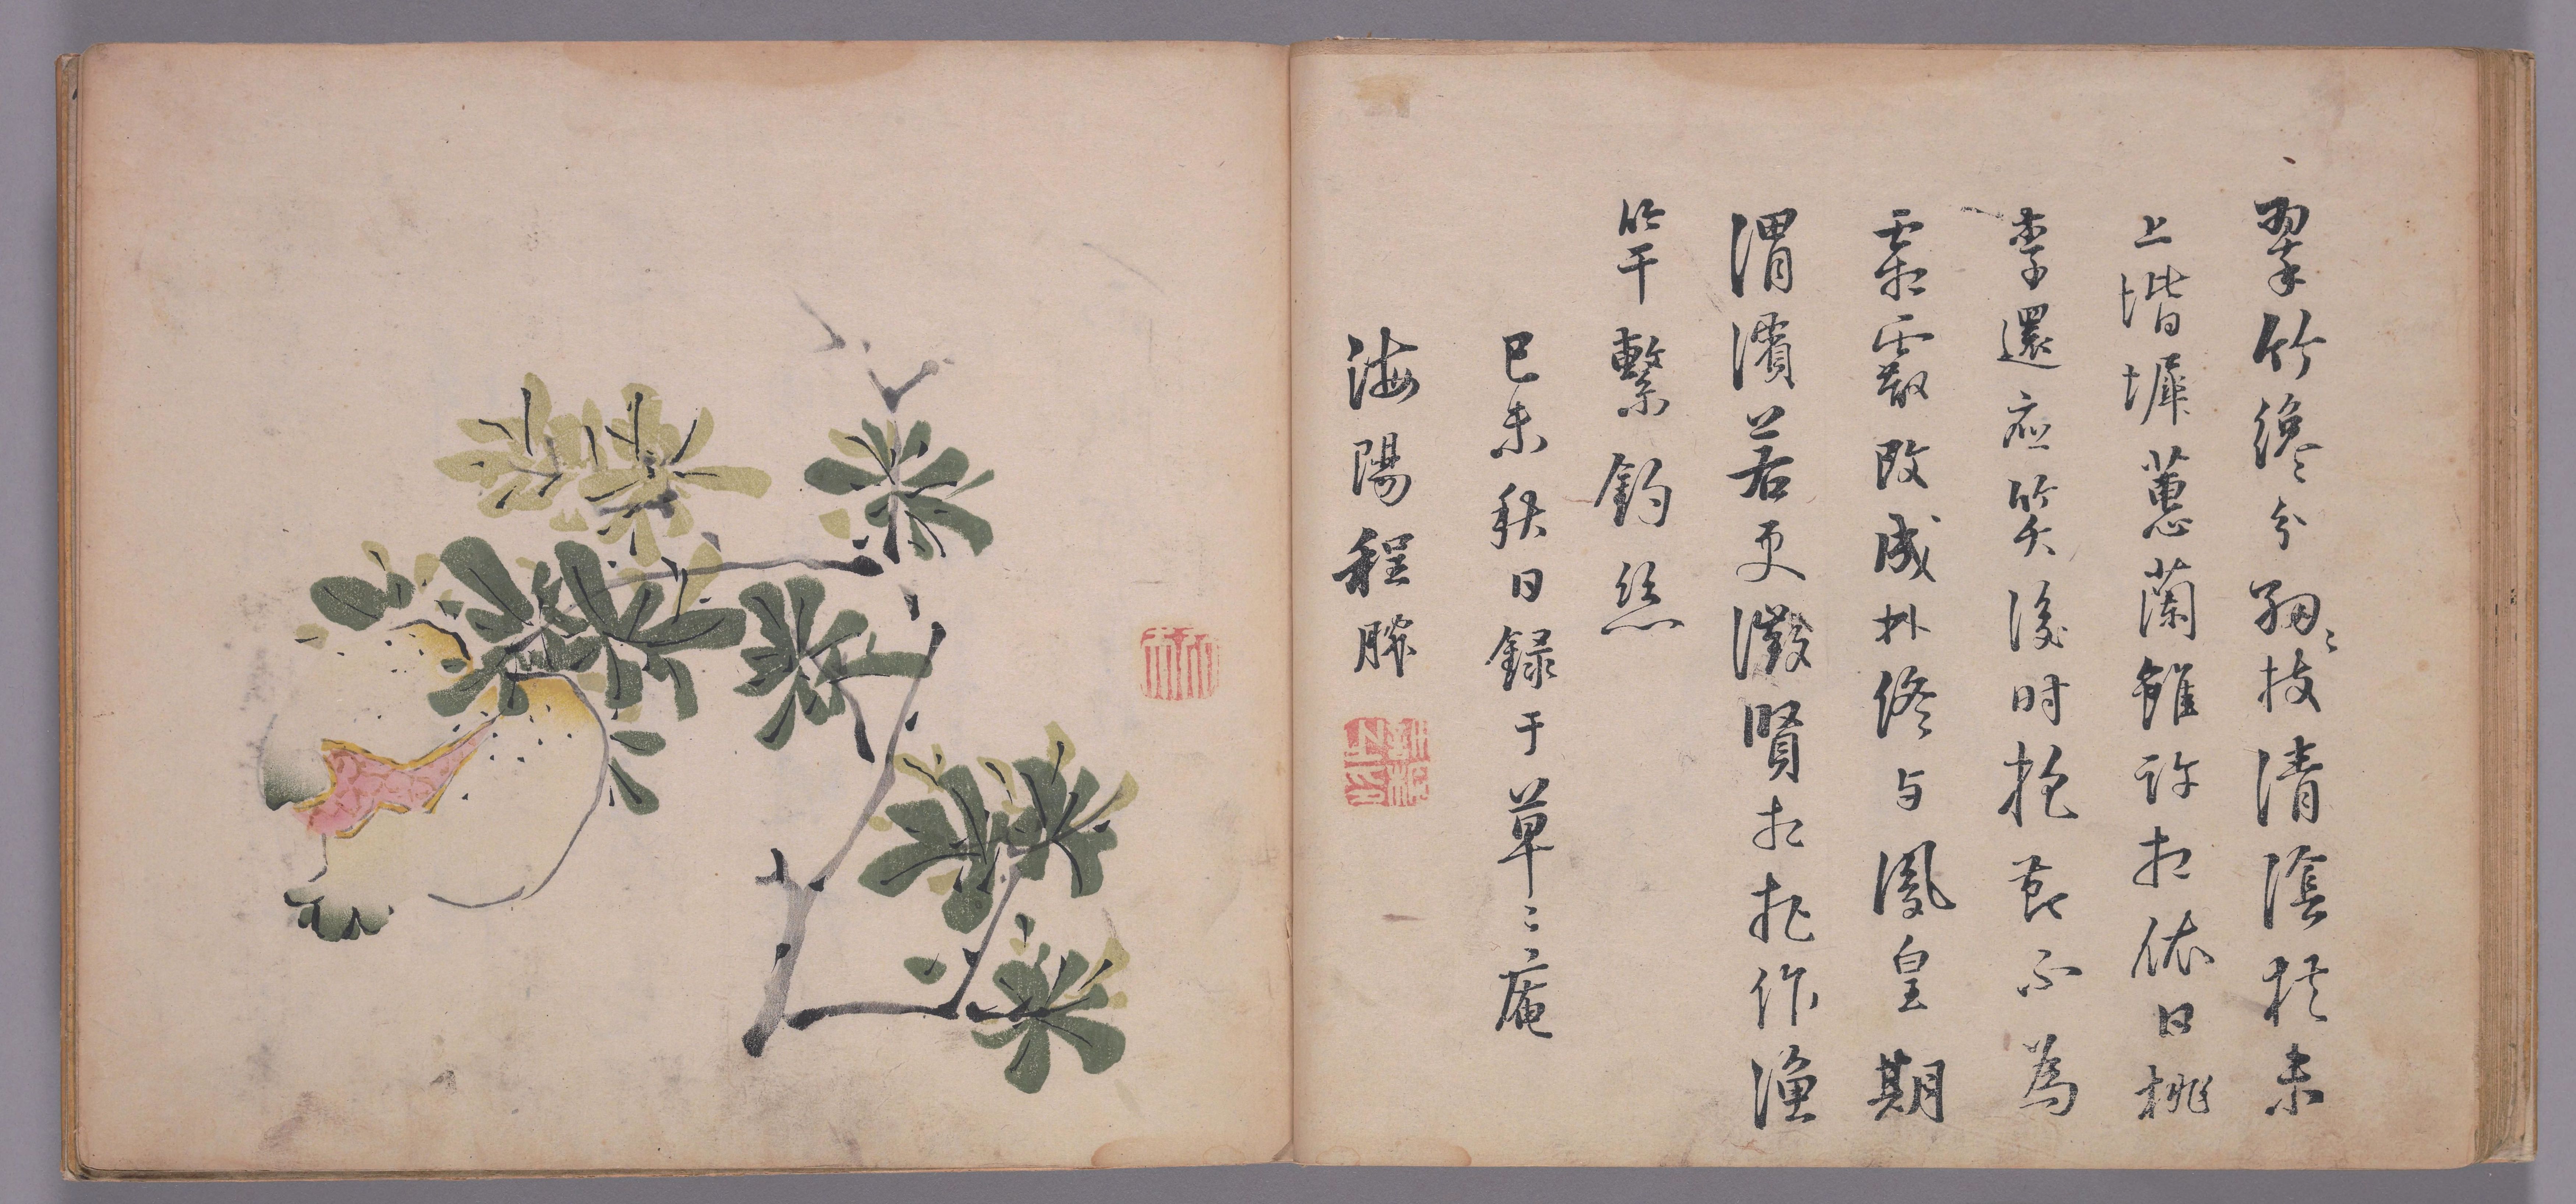 翠竹纔分細〻枝清陰猶未
上堦墀蕙蘭雖許相依日桃
李還應笑後时抱節不為
霜霰改成林終与鳳皇期
渭濱若更徵賢相托作漁
竿繫釣丝
己未秋日録于草〻庵
海陽程勝